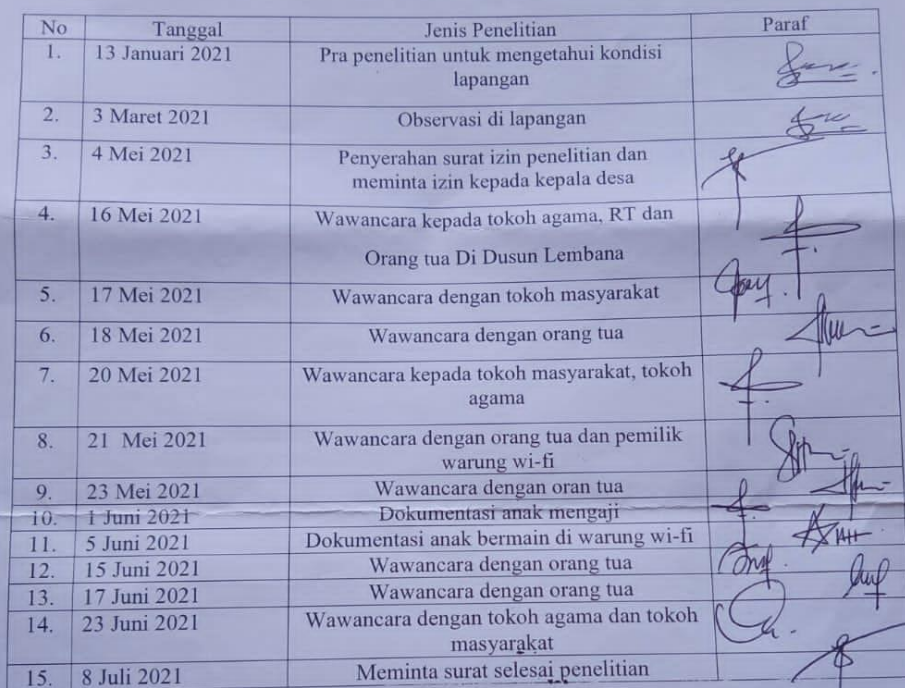 No Tanggal Jenis Penelitian Paraf
1. 13 Januari 2021 Pra penelitian untuk mengetahui kondisi
lapangan
2. 3 Maret 2021 Observasi di lapangan
3. 4 Mei 2021 Penyerahan surat izin penelitian dan
meminta izin kepada kepala desa
4. 16 Mei 2021 Wawancara kepada tokoh agama, RT dan
Orang tua Di Dusun Lembana
5. 17 Mei 2021 Wawancara dengan tokoh masyarakat
6. 18 Mei 2021 Wawancara dengan orang tua
7. 20 Mei 2021 Wawancara kepada tokoh masyarakat, tokoh
agama
8. 21 Mei 2021 Wawancara dengan orang tua dan pemilik
warung wi-fi
9. 23 Mei 2021 Wawancara dengan oran tua
10. 1 Juni 2021 Dokumentasi anak mengaji
11. 5 Juni 2021 Dokumentasi anak bermain di warung wi-fi
12. 15 Juni 2021 Wawancara dengan orang tua
13. 17 Juni 2021 Wawancara dengan orang tua
14. 23 Juni 2021 Wawancara dengan tokoh agama dan tokoh
masyarakat
15. 8 Juli 2021 Meminta surat selesai penelitian